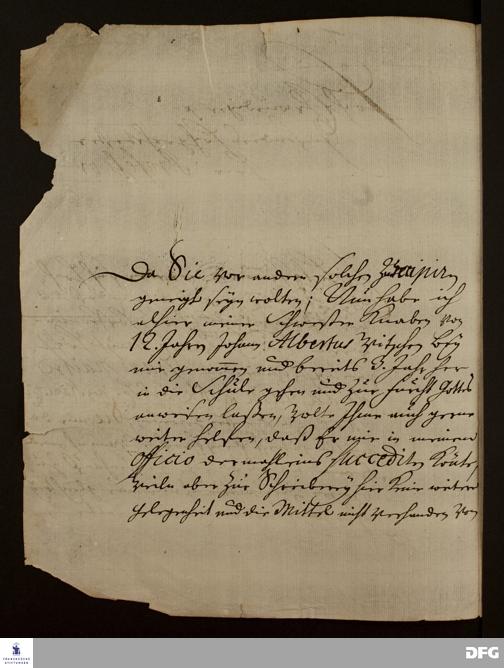 Da Sie vor andern solchen zu recipirn
geneigt seyn wolten; Nun habe ich
alhier meiner Schwester Knaben von
12. Jahren Johann Albertus bey
mir genommen und bereits 3. Jahr her
in die Schule gehen und zur furcht Gottes
anweisen lassen, wolte Ihme auch gerne
weiter helffen, daß Er mir in meinem
Officio dermahleins succediren könte,
Weiln aber zur Schreiberey hier keine weitere
gelegenheit und die Mittel nicht verhanden von
FRANCKESCHE STIFTUNGEN
DFG